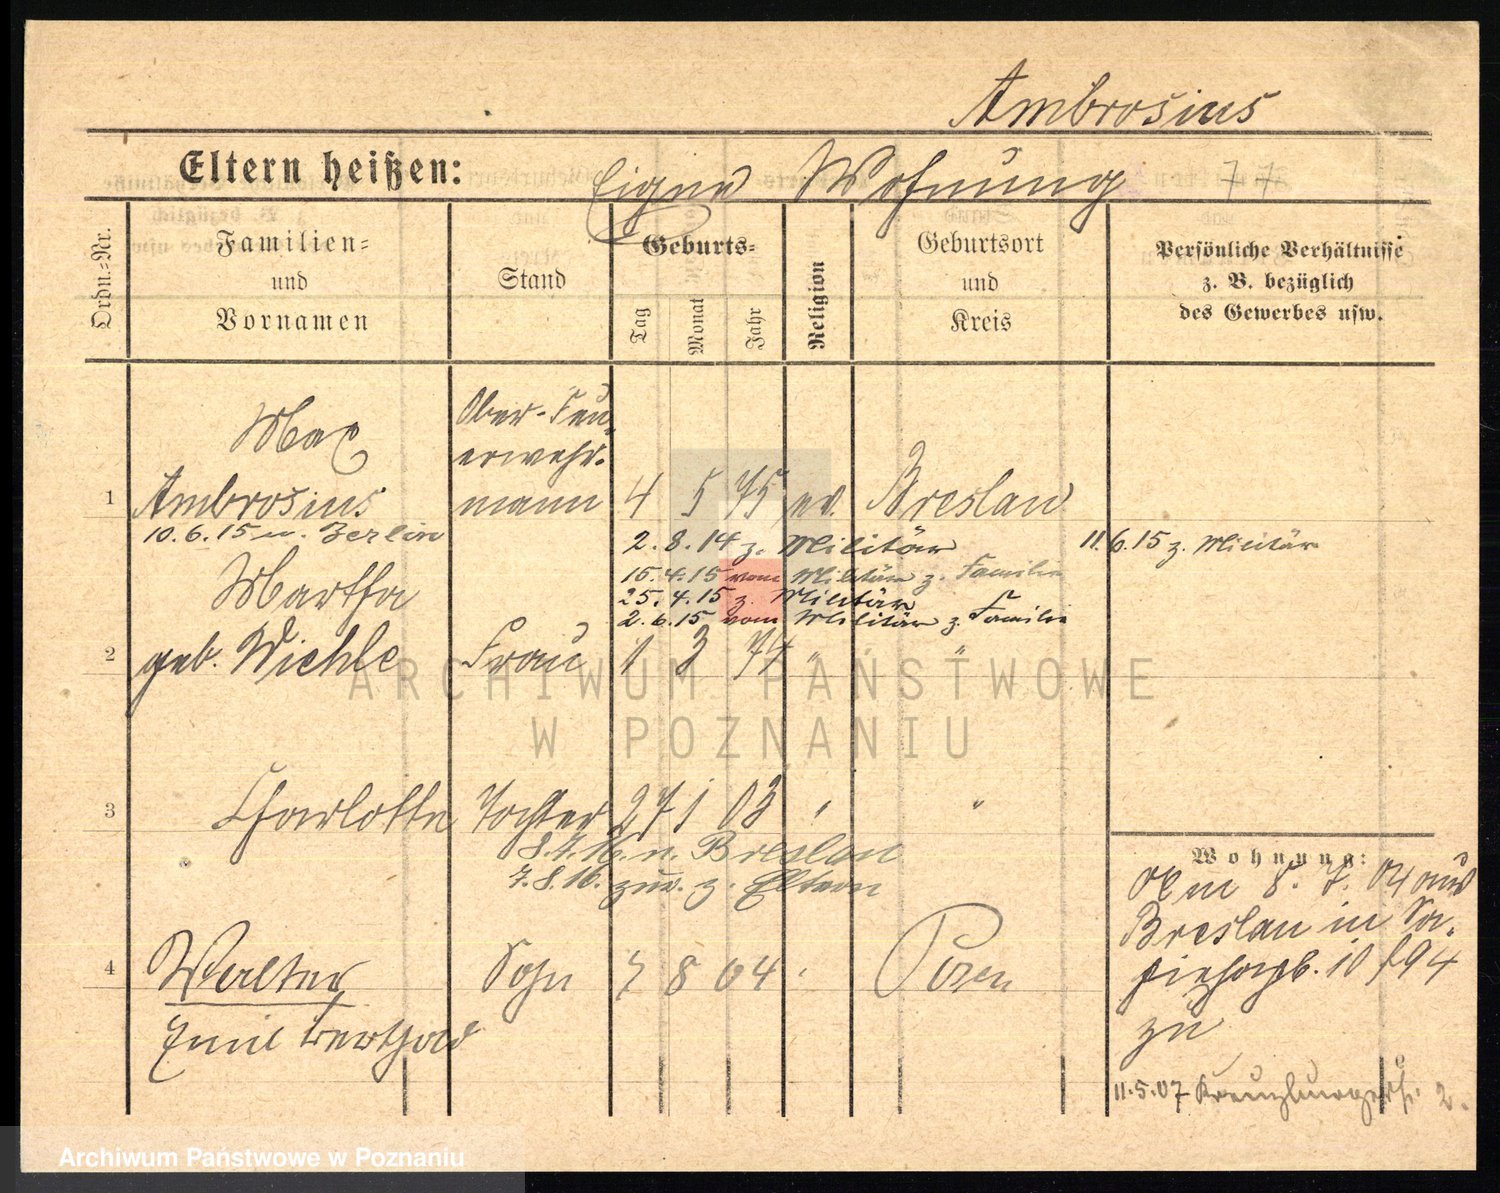 Ambrosius
Eltern heißen: Eigene Wohnung 77
Ordn.-Nr.
Familien-
und
Vornamen
Stand
Geburts-
Tag
Monat
Jahr
Religion
Geburtsort
und
Kreis
Persönliche Verhältnisse
z. B. bezüglich
des Gewerbes usw.
Max Ober-Feu-
erwehr-
1 Ambrosius mann 4 5 75 ev. Breslau
10.6.15 n. Berlin 2.8.14 z. Militär 11.6.15 z. Militär
Martha 15.4.15 vom Militär z. Familie
25.4.15 z. Militär
2.6.15 vom Militär z. Familie
2 geb. Wiehle Frau 1 3 74 " "
3 Charlotte Tochter 27 1 03 " "
8.7.16. n. Breslau
7.8.16. zur. z. Eltern
4 Walter Sohn 7 8 04 " Posen
Emil
Wohnung:
8. 7. 04 aus
Breslau in
10 f 94
zu
11.5.07 Kreuzburgerstr. 2.
ARCHIWUM PAŃSTWOWE
W POZNANIU
Archiwum Państwowe w Poznaniu